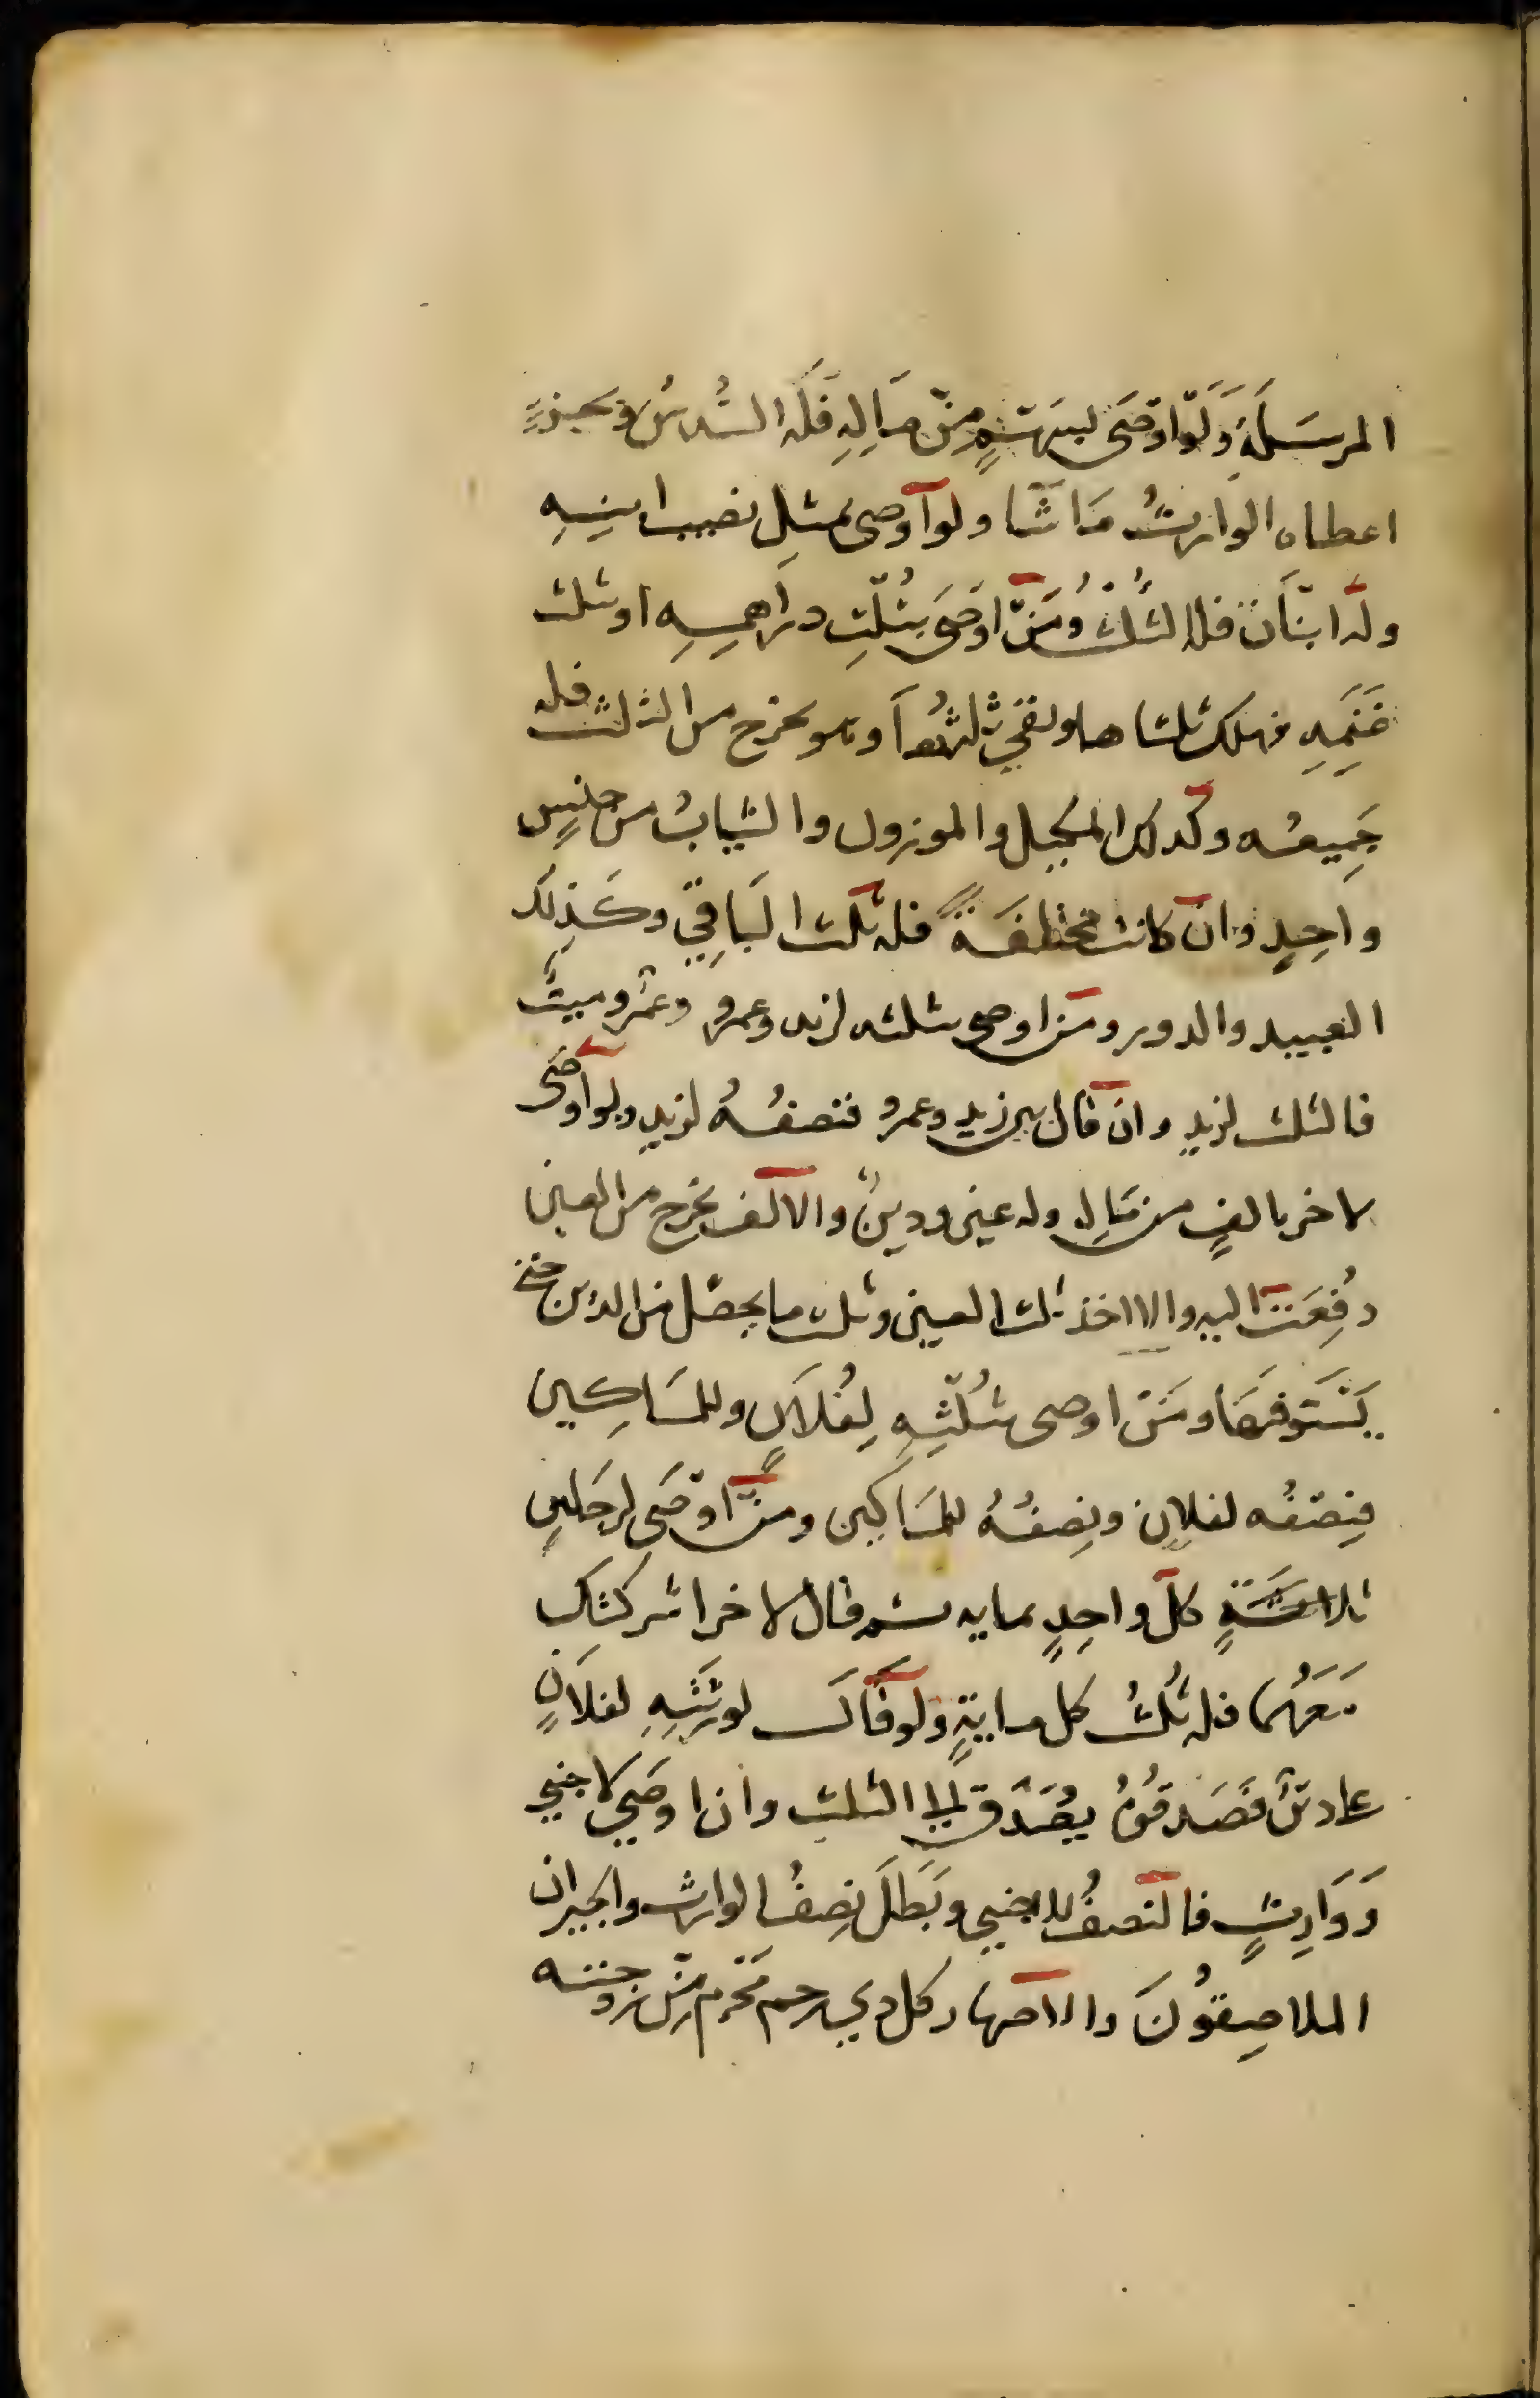 المرسَلَةِ وَلَوْ اَوْصَى بسَهْمٍ مِنْ مَالِهِ فَلَهُ السُّدسُ وبجزءٍ
اعطاه الوارثُ مَا شَا ولو اوصى بمثلِ نصيب ابنِهِ
وله ابنَانِ فله الثُلُثُ وَمَنْ اوصَى بثُلُثِ دراهمِهِ او ثلث
غَنَمِهِ فهلك ثلثاها وبقي ثلثُها وهو يخرج من الثلث فله
جَمِيعُه وكذلك المكيل والموزون والثيابُ من جنسٍ
واحِدٍ وان كانت مختلفَةً فله ثلث البَاقِي وكَذلِكَ
العبيد والدور ومن اوصى بثلثه لزيد وعمرو وعَمْرو ميتٌ
فالثلث لزيدٍ وان قال بين زيدٍ وعمرو فنصفُهُ لزيدٍ ولو اوصَى
لاخر بالفٍ من مَالِه وله عين ودينٌ والالف يخرج من العين
دُفِعَتْ اليه والا اخذ ثلث العين وثلث ما يحصل من الدين حتى
يَسْتَوفيَهَا ومَنْ اوصى بثُلثِهِ لِفُلانٍ وللمسَاكِين
فنِصْفُه لفلان ونِصفُهُ للمسَاكين ومن اوصَى لرجلينِ
لكل واحِدٍ بمايه ثم قال لاخر اشركتك
مَعَهُما فله ثلُثُ كل مايةٍ ولو قَالَ لورثَتِهِ لفلانٍ
على دينٌ فَصَدقُوهُ يُصَدَّق الى الثلث وان اوصَى لاجنبي
وَوَارِثٍ فالنصفُ للاجنبي وبَطَلَ نِصفُ الوارث والجيران
الملاصِقُونَ والاصهار كل ذي رحم مَحْرَم مِنْ زوجته